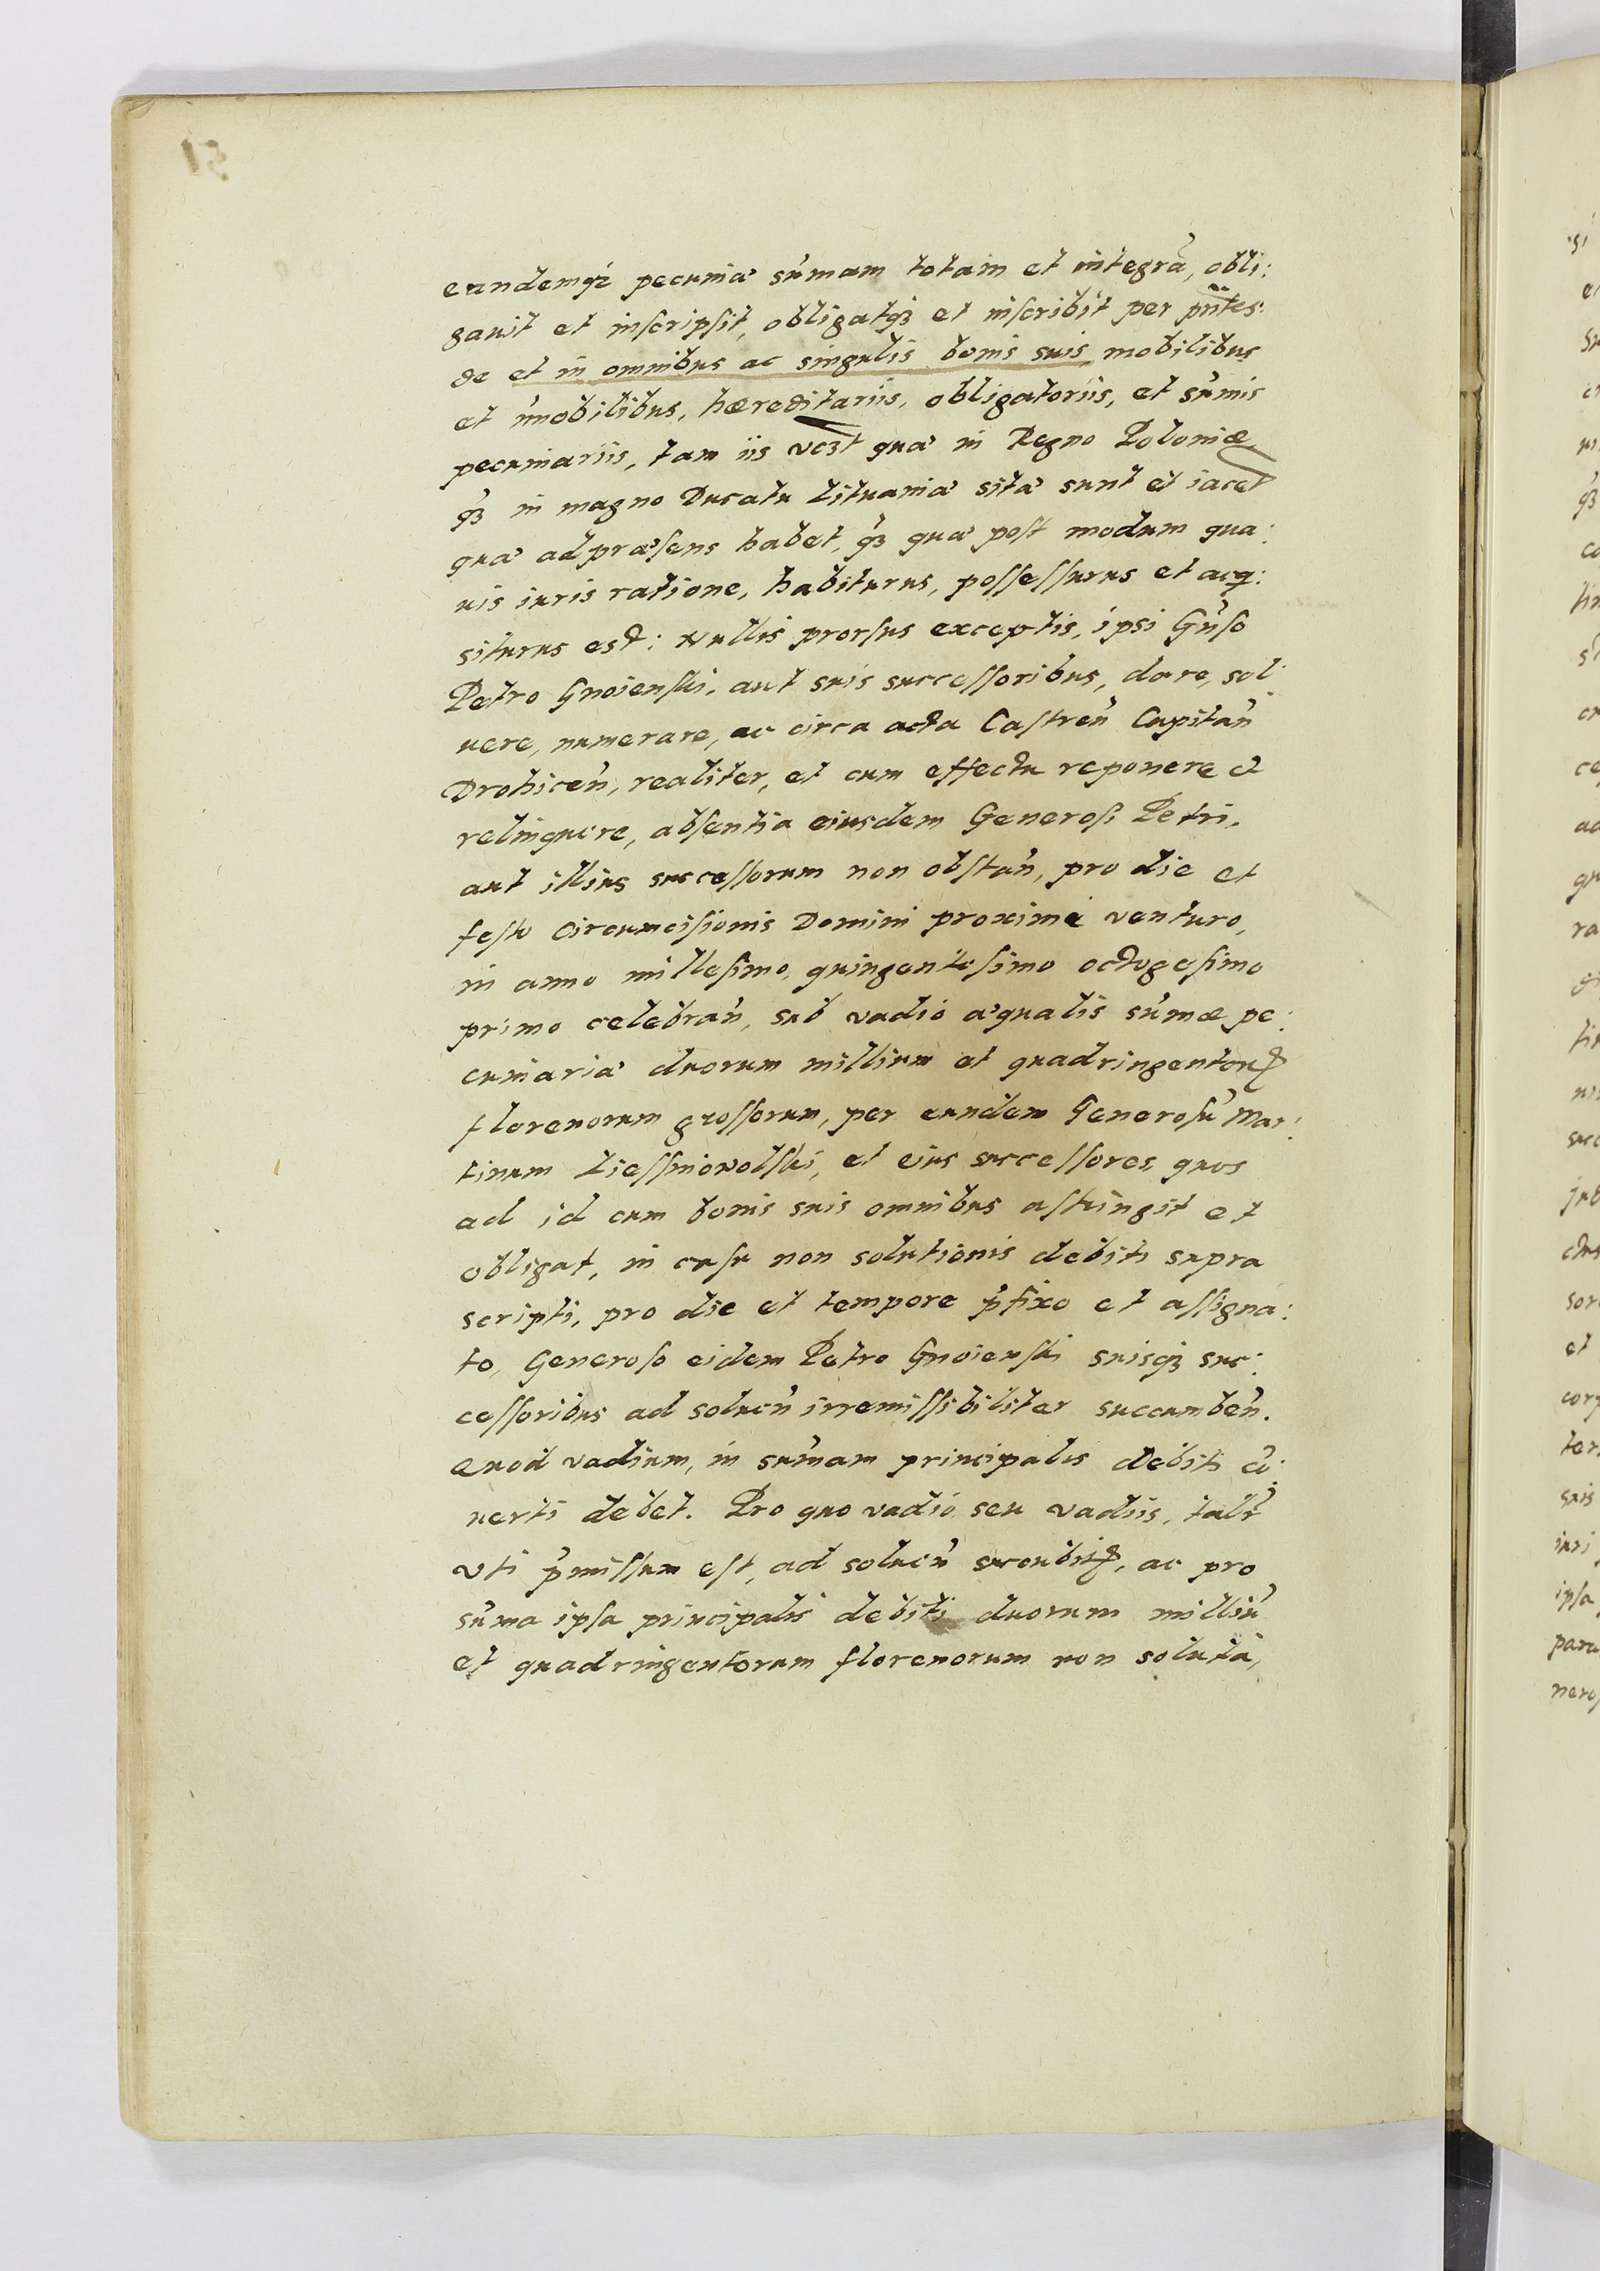 eandemq₃ pecuniæ sum̃am totam et integrã, obli:
gavit et inſcripſit, obligatq₃ et inſcribit per pñtes.
de et in omnibus ac singulis bonis suis mobilibus
et im̃obilibus, hæreditariis, obligatoriis, et sum̃is
pecuniariis, tam iis quæ in Regno Poloniæ
q₃ in magno Ducatu Lituaniæ sitæ sunt et iacet
quæ ad præſens habet, q₃ quæ poſt modum qua:
uis iuris ratione, habiturus, poſſeſſurus et acq:
siturus est: Nullis prorſus exceptis, ipsi Gñſo
Petro Gnoienſki, aut suis succeſſoribus, dare, sol:
uere, numerare, ac circa acta Caſtreñ Capitañ
Drohiceñ, realiter, et cum effectu reponere et
relinquere, abſentia eiusdem Generoſi Petri,
aut illius succeſſorum non obſtañ, pro die et
feſto Circumciſionis Domini proxime venturo,
in anno milleſimo, quingenteſimo octogeſimo
primo celebrañ, sub vadio æqualis sum̃æ pe:
cuniariæ duorum millium et quadringentorꝝ
florenorum groſſorum, per eundem Generoſũ Mar:
tinum Lieſſniowolſki, et eius succeſſores, quos
ad id cum bonis suis omnibus aſtringit et
obligat, in caſu non solutionis debiti supra
scripti, pro die et tempore p̃fixo et aſſigna:
to, Generoſo eidem Petro Gnoienſki suisq₃ suc:
ceſſoribus ad soluen̄ irremiſſibiliter succumbeñ.
Quod vadium, in sum̃am principalis debiti cõ:
uerti debet. Pro quo vadio seu vadiis, talr̃
vti p̃miſſum eſt, ad solueñ succubitꝝ, ac pro
sum̃a ipſa principalis debiti duorum milliũ
et quadringentorum florenorum non soluta,